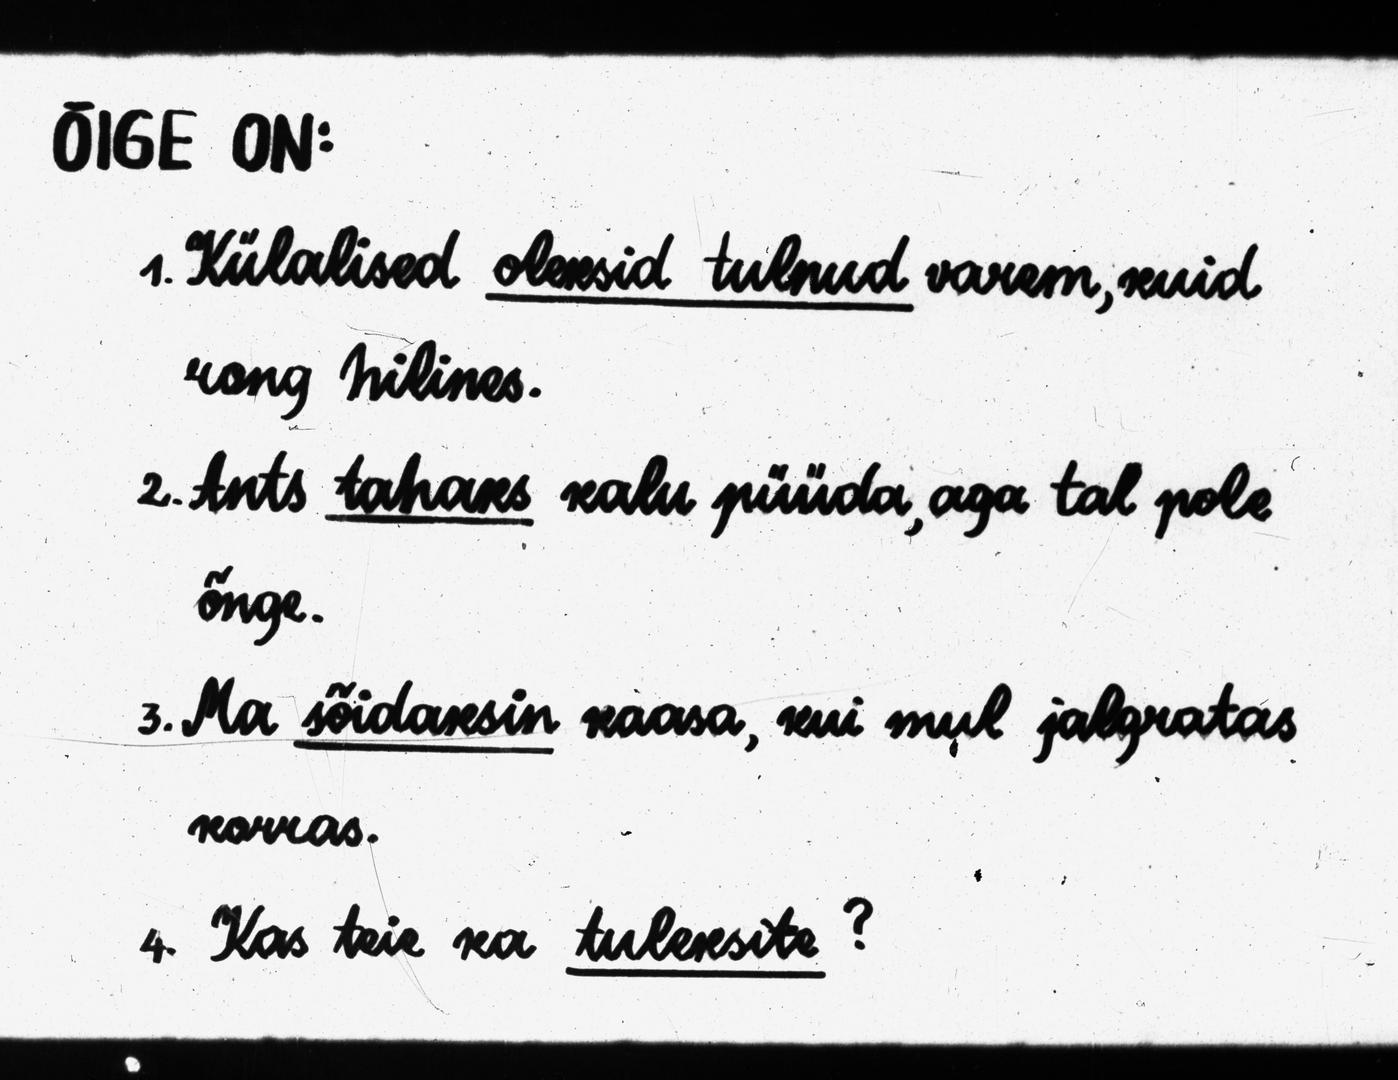 ÕIGE ON:
1. Külalised oleksid tulnud varem, kuid
rong hilines.
2. Ants tahaks kalu püüda, aga tal pole
õnge.
3. Ma sõidaksin kaasa, kui mul jalgratas
korras.
4. Kas teie ka tuleksite?